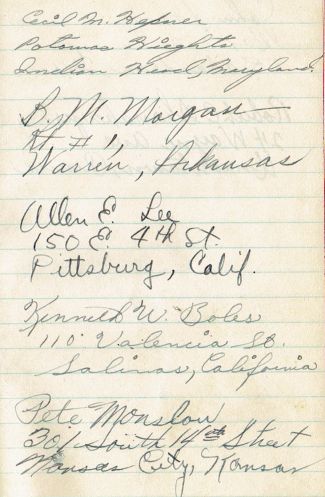 Cecil M. Hefner
Potomac Heights
Indian Head, Maryland.
B. M. Morgan
Rt. # 1,
Warren, Arkansas
Allen E. Lee
150 E. 4th St.
Pittsburg, Calif.
Kenneth W. Boles
110 Valencia St.
Salinas, California
Pete Monslow
301 South 14th Street
Kansas City, Kansas